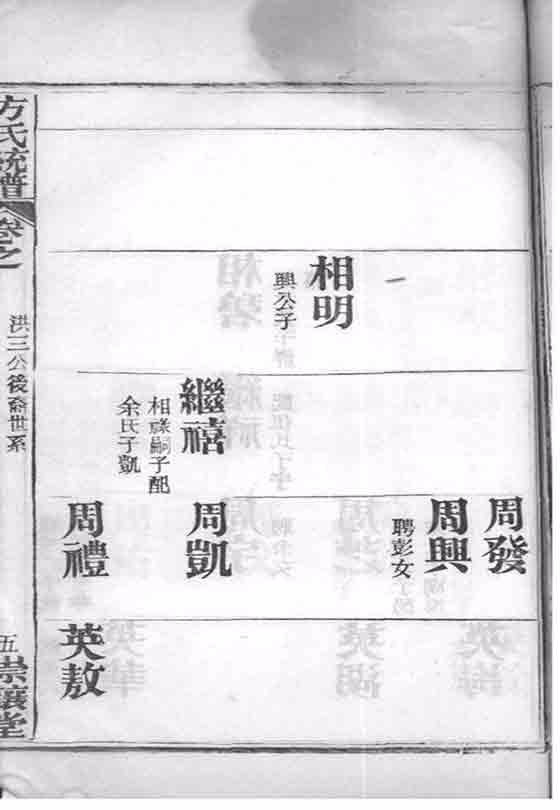 相明
興公子
周發
周興
聘彭女
繼禧
相祿嗣子配
余氏子凱
周凱
周禮
英敖
方氏統譜
卷之
洪三公後裔世系
五
崇讓堂